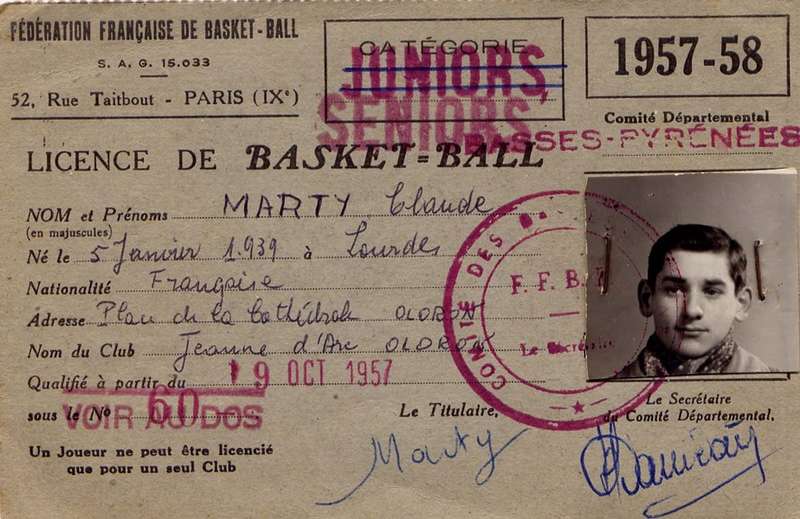 FÉDÉRATION FRANÇAISE DE BASKET-BALL
S. A. G. 15.033
52, Rue Taitbout - PARIS (IXe)
CATÉGORIE
JUNIORS
SENIORS
1957-58
Comité Départemental
BASSES-PYRÉNÉES
LICENCE DE BASKET=BALL
NOM et Prénoms MARTY Claude
(en majuscules)
Né le 5 Janvier 1.939 à Lourdes
Nationalité Française
Adresse Place de la Cathédrale OLORON
Nom du Club Jeanne d'Arc OLORON
Qualifié à partir du 19 OCT 1957
sous le No 60
VOIR AU DOS
COMITÉ DES B.
F. F. B.
Le Secrétaire
Un Joueur ne peut être licencié
que pour un seul Club
Le Titulaire,
Marty
Le Secrétaire
du Comité Départemental,